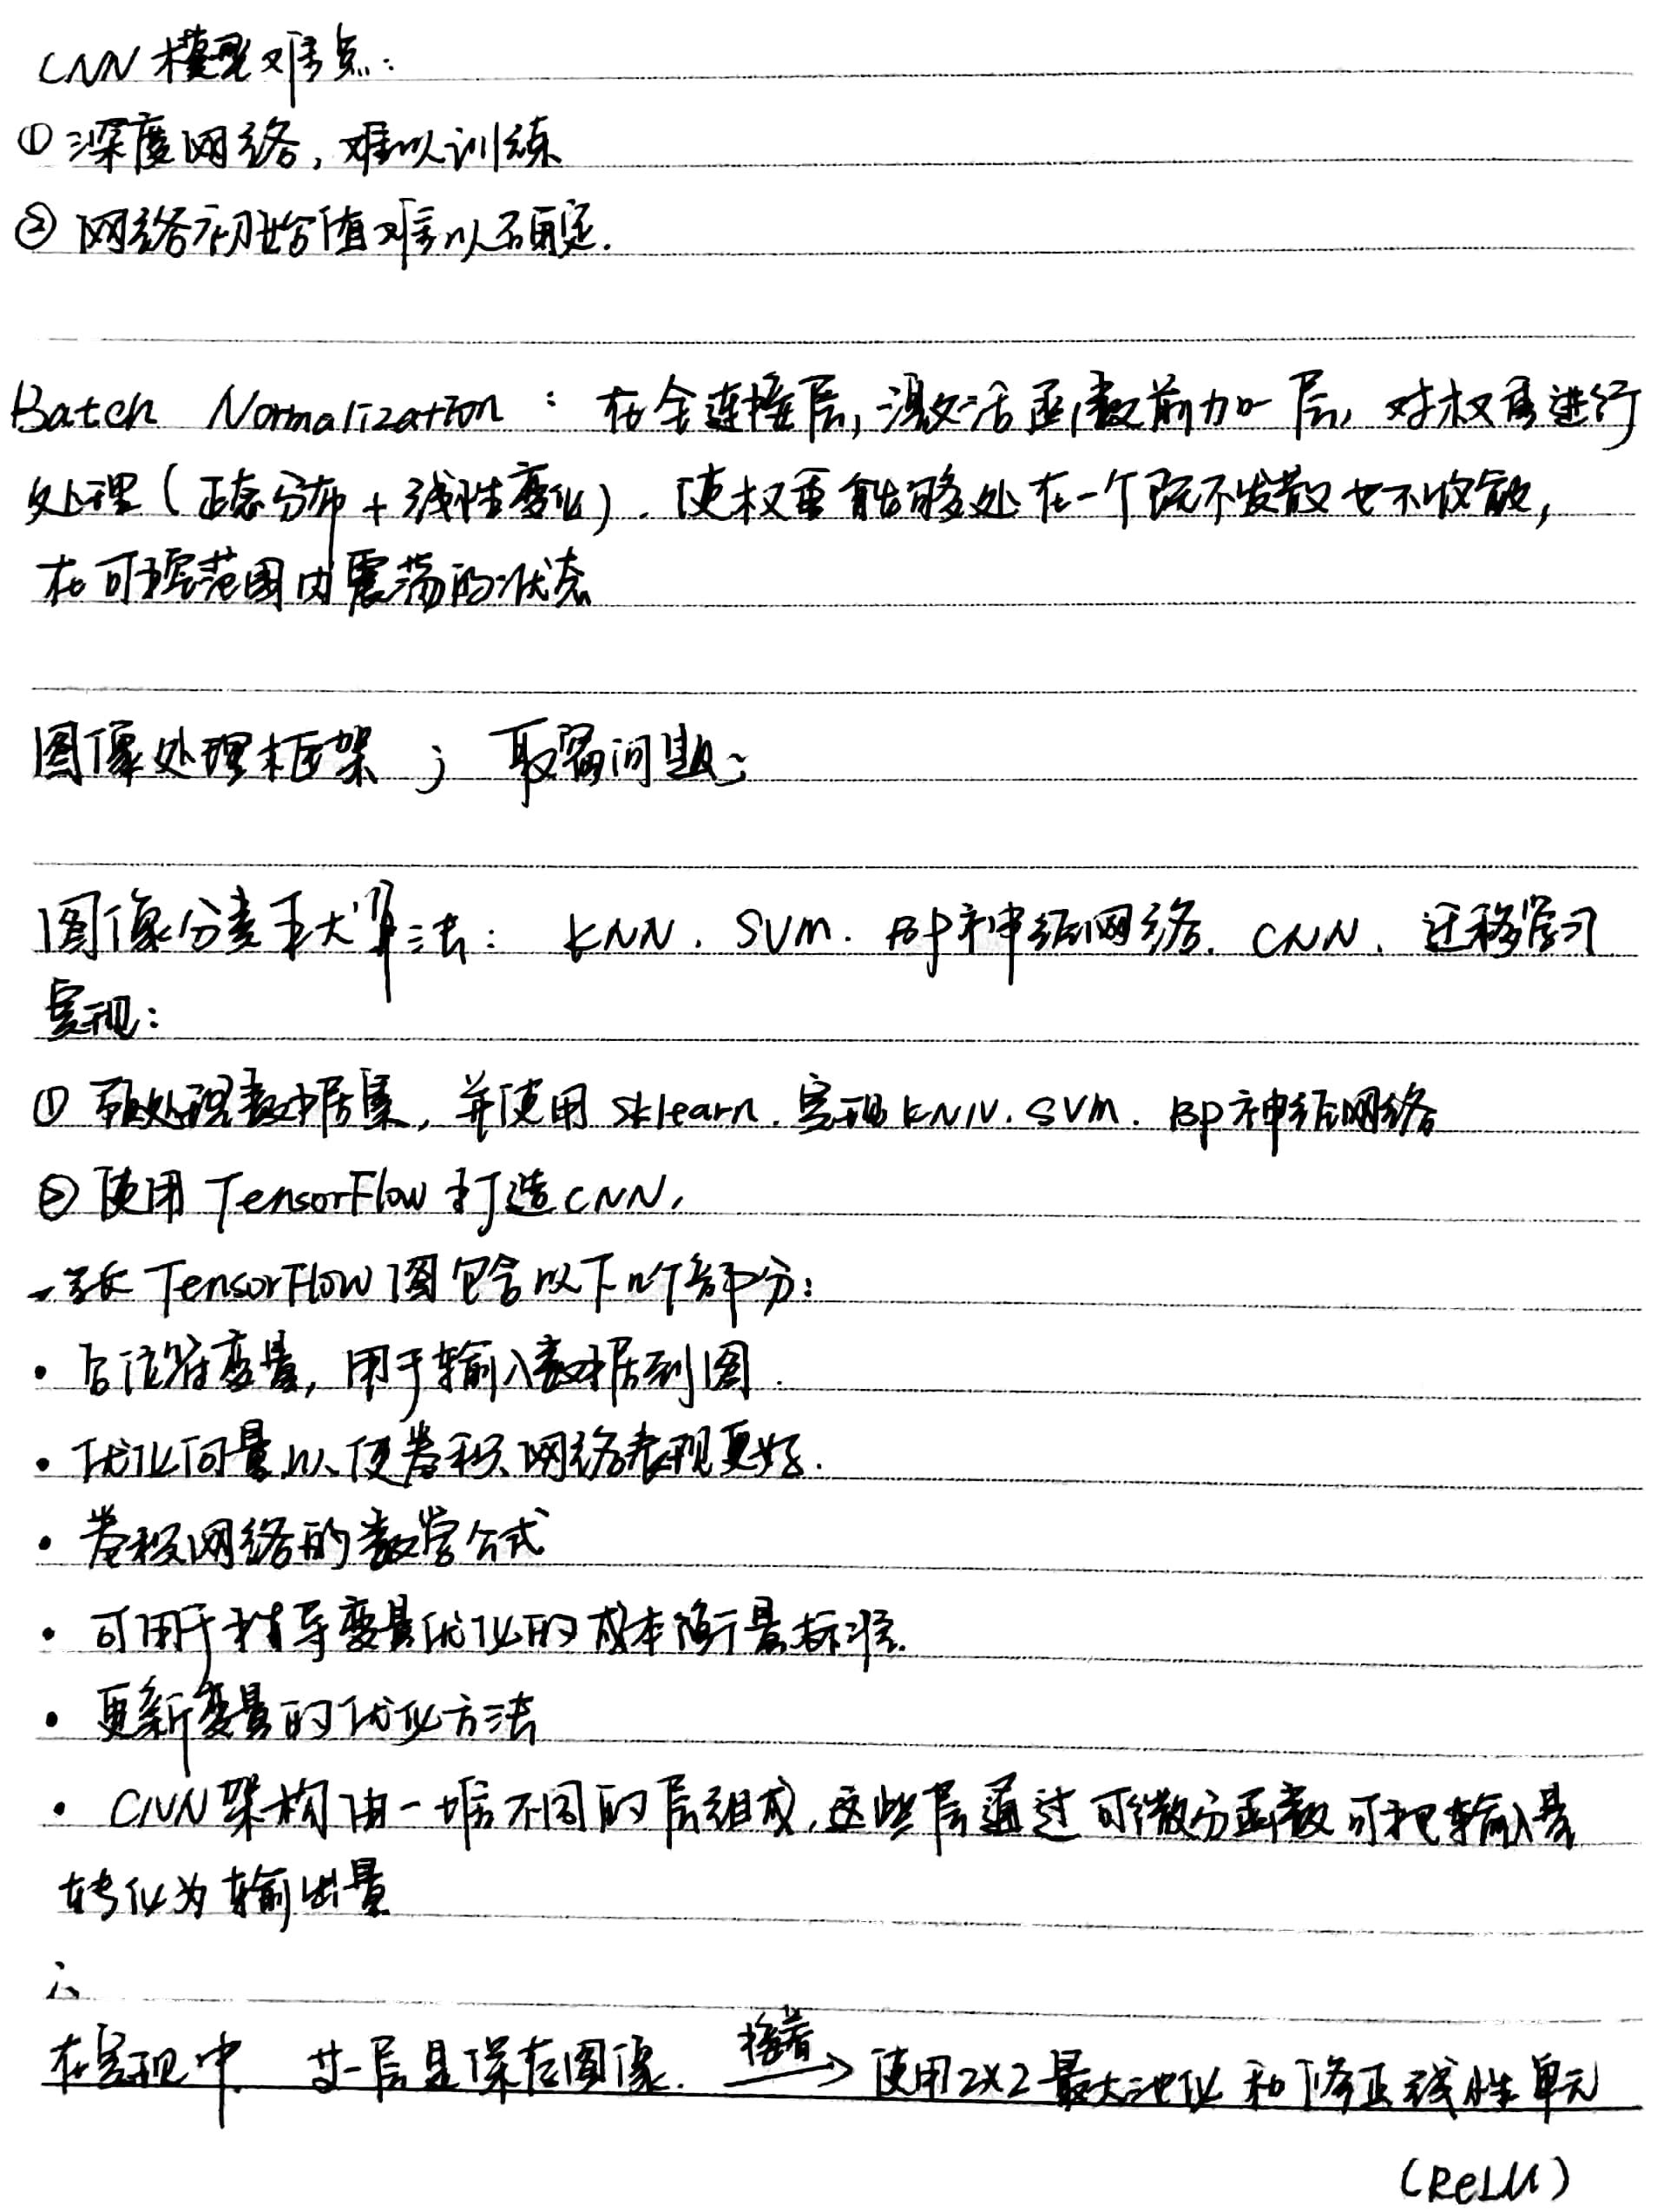 CNN模型难点:
① 深度网络, 难以训练
② 网络初始值难以确定.
Batch Normalization : 在全连接层, 激活函数前加一层, 对权重进行
处理(正态分布+线性变化). 使权重能够处在一个既不发散也不收敛,
在可控范围内震荡的状态
图像处理框架 ; 取留问题;
图像分类五大算法: KNN. SVM. BP神经网络. CNN. 迁移学习
实现:
① 预处理数据集, 并使用 sklearn. 实现KNN. SVM. BP神经网络
② 使用 TensorFlow 打造CNN,
一张 TensorFlow 图包含以下几个部分:
· 占位符变量, 用于输入数据到图.
· 优化向量以使卷积网络表现更好.
· 卷积网络的数学公式
· 可用于指导变量优化的成本衡量标准.
· 更新变量的优化方法
· CNN架构由一堆不同的层组成, 这些层通过可微分函数可把输入量
转化为输出量
∴
在实现中. 第一层是保存图像. 接着→ 使用2×2最大池化和修正线性单元
(ReLU)